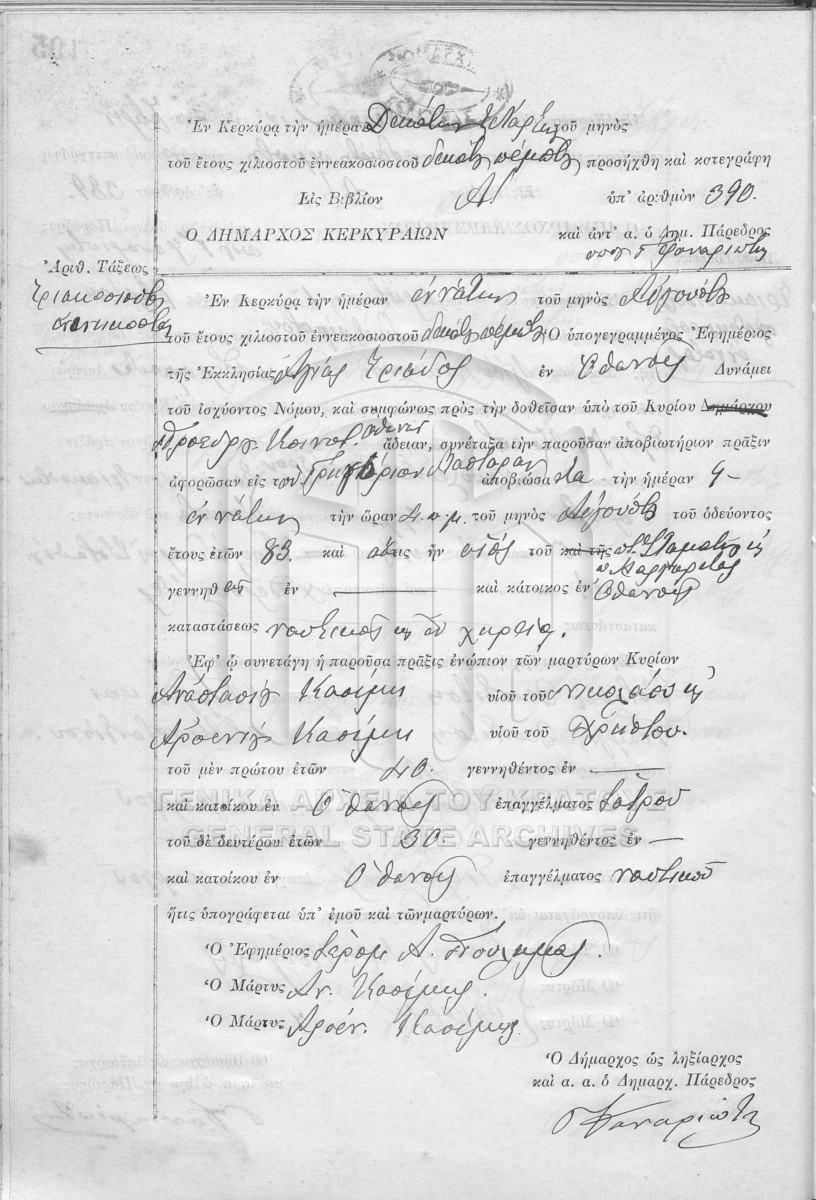 Ἐν Κερκύρᾳ τὴν ἡμέραν Δεκάτην τετάρτην τοῦ μηνὸς
τοῦ ἔτους χιλιοστοῦ ἐννεακοσιοστοῦ δεκάτου πέμπτου προσήχθη καὶ κατεγράφη
Εἰς Βιβλίον Α' ὑπ' ἀριθμὸν 390.
Ο ΔΗΜΑΡΧΟΣ ΚΕΡΚΥΡΑΙΩΝ καὶ ἀντ' α. ὁ Δημ. Πάρεδρος
Ἀριθ. Τάξεως
Τριακοσιοστὸς
Ἐν Κερκύρᾳ τὴν ἡμέραν ἐννάτην τοῦ μηνὸς Αὐγούστου
τοῦ ἔτους χιλιοστοῦ ἐννεακοσιοστοῦ δεκάτου πέμπτου Ὁ ὑπογεγραμμένος Ἐφημέριος
τῆς Ἐκκλησίας Ἁγίας Τριάδος ἐν Ὀθωνοῖς Δυνάμει
τοῦ ἰσχύοντος Νόμου, καὶ συμφώνως πρὸς τὴν δοθεῖσαν ὑπὸ τοῦ Κυρίου Δημάρχου
Προέδρου Κοινοτ. Ὀθωνῶν ἄδειαν, συνέταξα τὴν παροῦσαν ἀποβιωτήριον πρᾶξιν
ἀφορῶσαν εἰς τὸν Γρηγόριον ἀποβιώσαντα τὴν ἡμέραν 9
ἐννάτην τὴν ὥραν 4 π.μ. τοῦ μηνὸς Αὐγούστου τοῦ ὁδεύοντος
ἔτους ἐτῶν 83 καὶ ὅστις ἦν υἱὸς τοῦ καὶ τῆς π. Σταματίου καὶ
π. Μαργαρίτας
γεννηθεὶς ἐν καὶ κάτοικος ἐν Ὀθωνοῖς
καταστάσεως ναυτικὸς ἐν χηρείᾳ.
Ἐφ' ᾧ συνετάγη ἡ παροῦσα πρᾶξις ἐνώπιον τῶν μαρτύρων Κυρίων
Ἀναστασίου Κασίμη υἱοῦ τοῦ Νικολάου καὶ
Ἀρσενίου Κασίμη υἱοῦ τοῦ Χρήστου.
τοῦ μὲν πρώτου ἐτῶν 40. γεννηθέντος ἐν
καὶ κατοίκου ἐν Ὀθωνοῖς ἐπαγγέλματος ἰατροῦ
ΓΕΝΙΚΑ ΑΡΧΕΙΑ ΤΟΥ ΚΡΑΤΟΥΣ
GENERAL STATE ARCHIVES
τοῦ δὲ δευτέρου ἐτῶν 30. γεννηθέντος ἐν
καὶ κατοίκου ἐν Ὀθωνοῖς ἐπαγγέλματος ναυτικοῦ
ἥτις ὑπογράφεται ὑπ' ἐμοῦ καὶ τῶνμαρτύρων.
Ὁ Ἐφημέριος Ἱερομ. Α.
Ὁ Μάρτυς Αν. Κασίμης.
Ὁ Μάρτυς Ἀρσέν. Κασίμης
Ὁ Δήμαρχος ὡς ληξίαρχος
καὶ α. α. ὁ Δημαρχ. Πάρεδρος